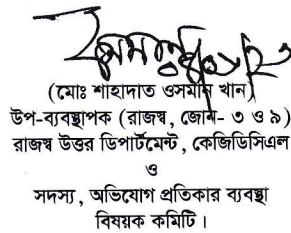 (মোঃ শাহাদাত ওসমান খান)
উপ-ব্যবস্থাপক (রাজস্ব, জোন- ৩ ও ৯)
রাজস্ব উত্তর ডিপার্টমেন্ট, কেজিডিসিএল
ও
সদস্য, অভিযোগ প্রতিকার ব্যবস্থা
বিষয়ক কমিটি।